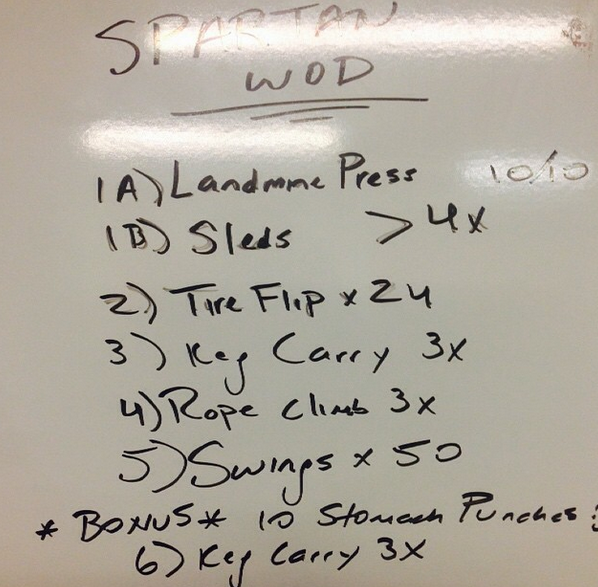 SPARTAN
WOD
1A) Landmine Press 10/10
1B) Sleds > 4x
2) Tire Flip x 24
3) Keg Carry 3x
4) Rope Climb 3x
5) Swings x 50
* BONUS * 10 Stomach Punches :
6) Keg Carry 3x